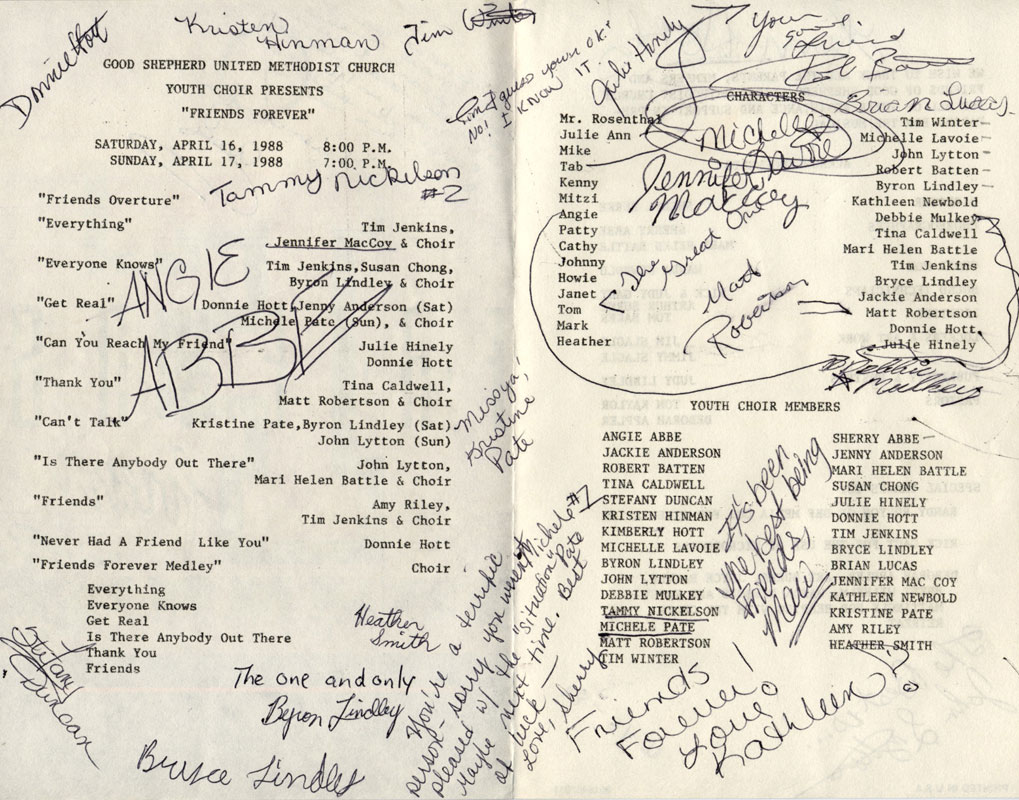 Donnie Hott
Kristen
Hinman
Tim Winter
GOOD SHEPHERD UNITED METHODIST CHURCH
YOUTH CHOIR PRESENTS
"FRIENDS FOREVER"
SATURDAY, APRIL 16, 1988 8:00 P.M.
SUNDAY, APRIL 17, 1988 7:00 P.M.
Tammy Nickelson
#2
"Friends Overture"
"Everything" Tim Jenkins,
Jennifer MacCoy & Choir
"Everyone Knows" Tim Jenkins,Susan Chong,
Byron Lindley & Choir
"Get Real" Donnie Hott,Jenny Anderson (Sat)
Michele Pate (Sun), & Choir
"Can You Reach My Friend" Julie Hinely
Donnie Hott
"Thank You" Tina Caldwell,
Matt Robertson & Choir
"Can't Talk" Kristine Pate,Byron Lindley (Sat)
John Lytton (Sun)
"Is There Anybody Out There" John Lytton,
Mari Helen Battle & Choir
"Friends" Amy Riley,
Tim Jenkins & Choir
"Never Had A Friend Like You" Donnie Hott
"Friends Forever Medley" Choir
Everything
Everyone Knows
Get Real
Is There Anybody Out There
Thank You
Friends
ANGIE
ABBE
Stefany
Duncan
Heather
Smith
The one and only
Byron Lindley
Bryce Lindley
Tim I guess your OK."
No! I KNOW IT.
Miss ya,
Kristine
Pate
You're a terrific
person - sorry you weren't
pleased w/ the "situation",
Maybe next time. Best
of luck —
Love, Sherry
Michele Pate #1
Julie Hinely
Your
good
friend
Bob Batten
Brian Lucas
CHARACTERS
Mr. Rosenthal Tim Winter
Julie Ann Michelle Lavoie
Mike John Lytton
Tab Robert Batten
Kenny Byron Lindley
Mitzi Kathleen Newbold
Angie Debbie Mulkey
Patty Tina Caldwell
Cathy Mari Helen Battle
Johnny Tim Jenkins
Howie Bryce Lindley
Janet Jackie Anderson
Tom Matt Robertson
Mark Donnie Hott
Heather Julie Hinely
Michelle
Lavoie
Jennifer
MacCoy
The Great One
Matt
Robertson
Debbie
Mulkey
YOUTH CHOIR MEMBERS
ANGIE ABBE SHERRY ABBE
JACKIE ANDERSON JENNY ANDERSON
ROBERT BATTEN MARI HELEN BATTLE
TINA CALDWELL SUSAN CHONG
STEFANY DUNCAN JULIE HINELY
KRISTEN HINMAN DONNIE HOTT
KIMBERLY HOTT TIM JENKINS
MICHELLE LAVOIE BRYCE LINDLEY
BYRON LINDLEY BRIAN LUCAS
JOHN LYTTON JENNIFER MAC COY
DEBBIE MULKEY KATHLEEN NEWBOLD
TAMMY NICKELSON KRISTINE PATE
MICHELE PATE AMY RILEY
MATT ROBERTSON HEATHER SMITH
TIM WINTER
It's been
the best being
friends,
Friends
Forever!
Love
Kathleen